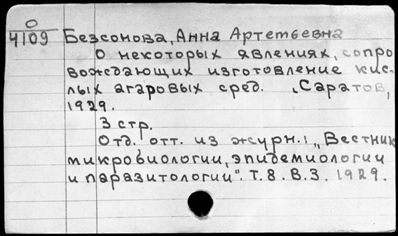 О
4109 Безсонова, Анна Артемьевна
О некоторых явлениях, сопро
вождающих изготовление кис-
лых агаровых сред. Саратов,
1929.
3 стр.
Отд. отт. из журн.: „Вестник
микробиологии, эпидемиологии
и паразитологии". Т. 8. В. 3. 1929.